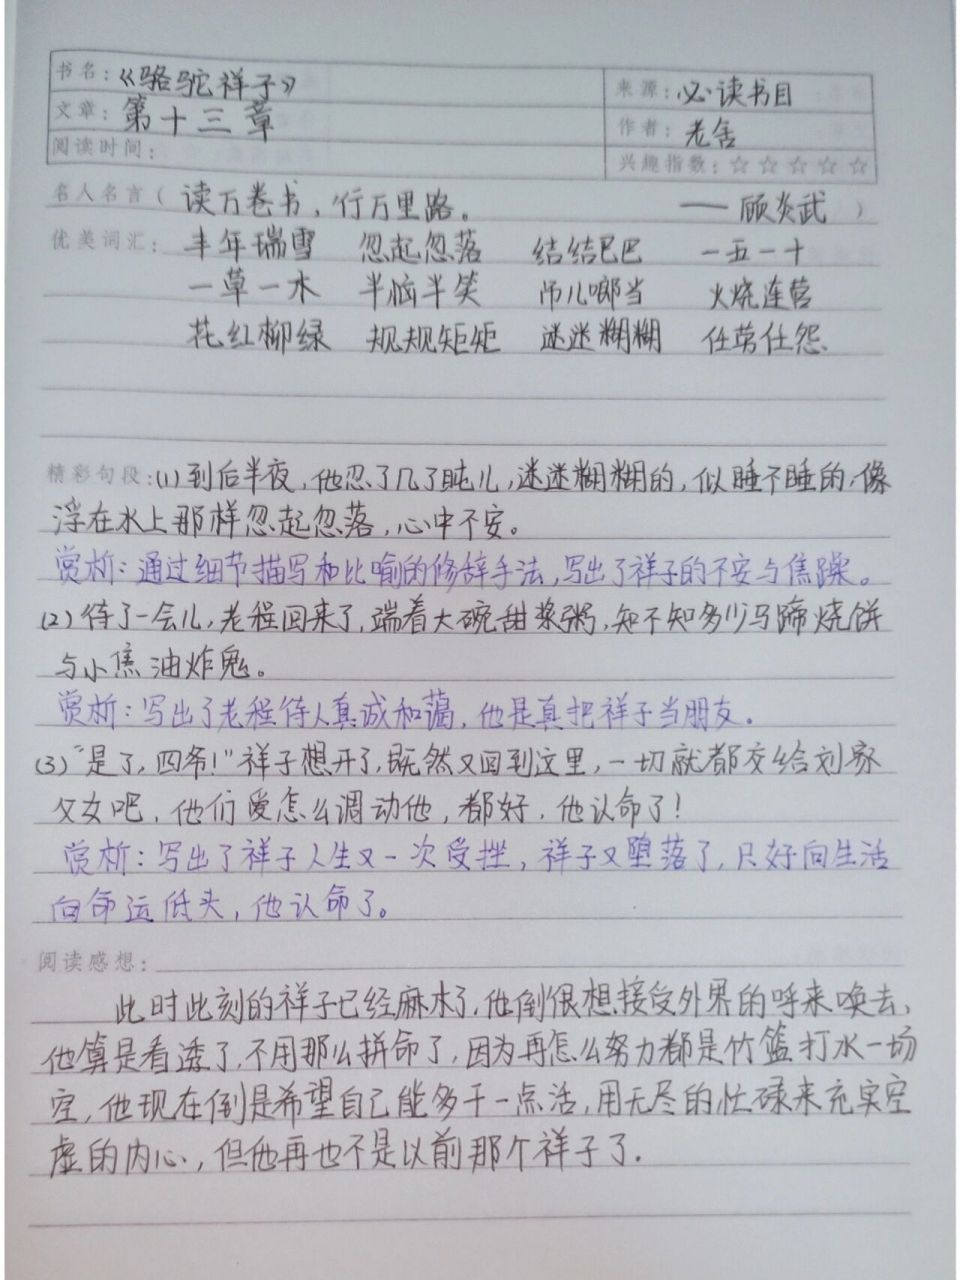 书名：《骆驼祥子》 来源：必读书目
文章：第十三章 作者：老舍
阅读时间： 兴趣指数：☆☆☆☆☆
名人名言（读万卷书，行万里路。 ——顾炎武）
优美词汇：丰年瑞雪 忽起忽落 结结巴巴 一五一十
一草一木 半恼半笑 吊儿啷当 火烧连营
花红柳绿 规规矩矩 迷迷糊糊 任劳任怨
精彩句段：(1)到后半夜，他忍了几了盹儿，迷迷糊糊的，似睡不睡的，像
浮在水上那样忽起忽落，心中不安。
赏析：通过细节描写和比喻的修辞手法，写出了祥子的不安与焦躁。
(2)待了一会儿，老程回来了，端着大碗甜浆粥，知不知多少马蹄烧饼
与小焦油炸鬼。
赏析：写出了老程待人真诚和蔼，他是真把祥子当朋友。
(3)“是了，四爷！”祥子想开了，既然又回到这里，一切就都交给刘家
父女吧，他们爱怎么调动他，都好，他认命了！
赏析：写出了祥子人生又一次受挫，祥子又堕落了，只好向生活
向命运低头，他认命了。
阅读感想：
此时此刻的祥子已经麻木了，他倒很想接受外界的呼来唤去，
他算是看透了，不用那么拼命了，因为再怎么努力都是竹篮打水一场
空，他现在倒是希望自己能多干一点活，用无尽的忙碌来充实空
虚的内心，但他再也不是以前那个祥子了.